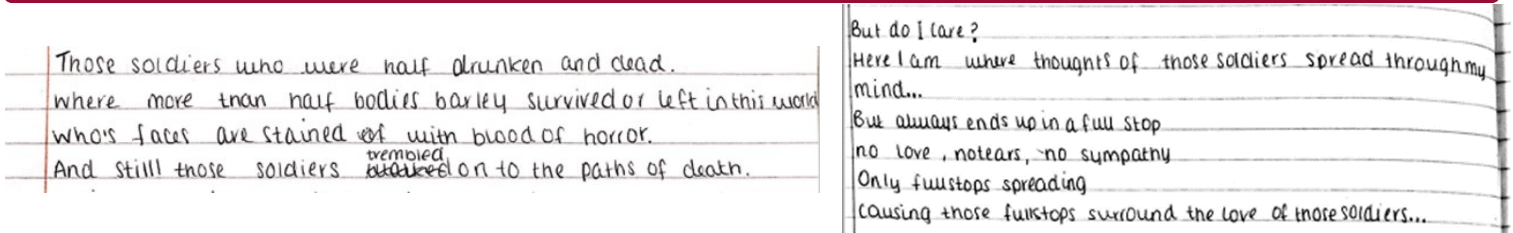 Those soldiers who were half drunken and dead.
where more than half bodies barley survived or left in this world
who's faces are stained of with blood of horror.
trembled
And stilll those soldiers on to the paths of death.
But do I care?
Here I am where thoughts of those soldiers spread through my
mind...
But always ends up in a full stop
no love, no tears, no sympathy
Only fullstops spreading
causing those fullstops surround the love of those soldiers...